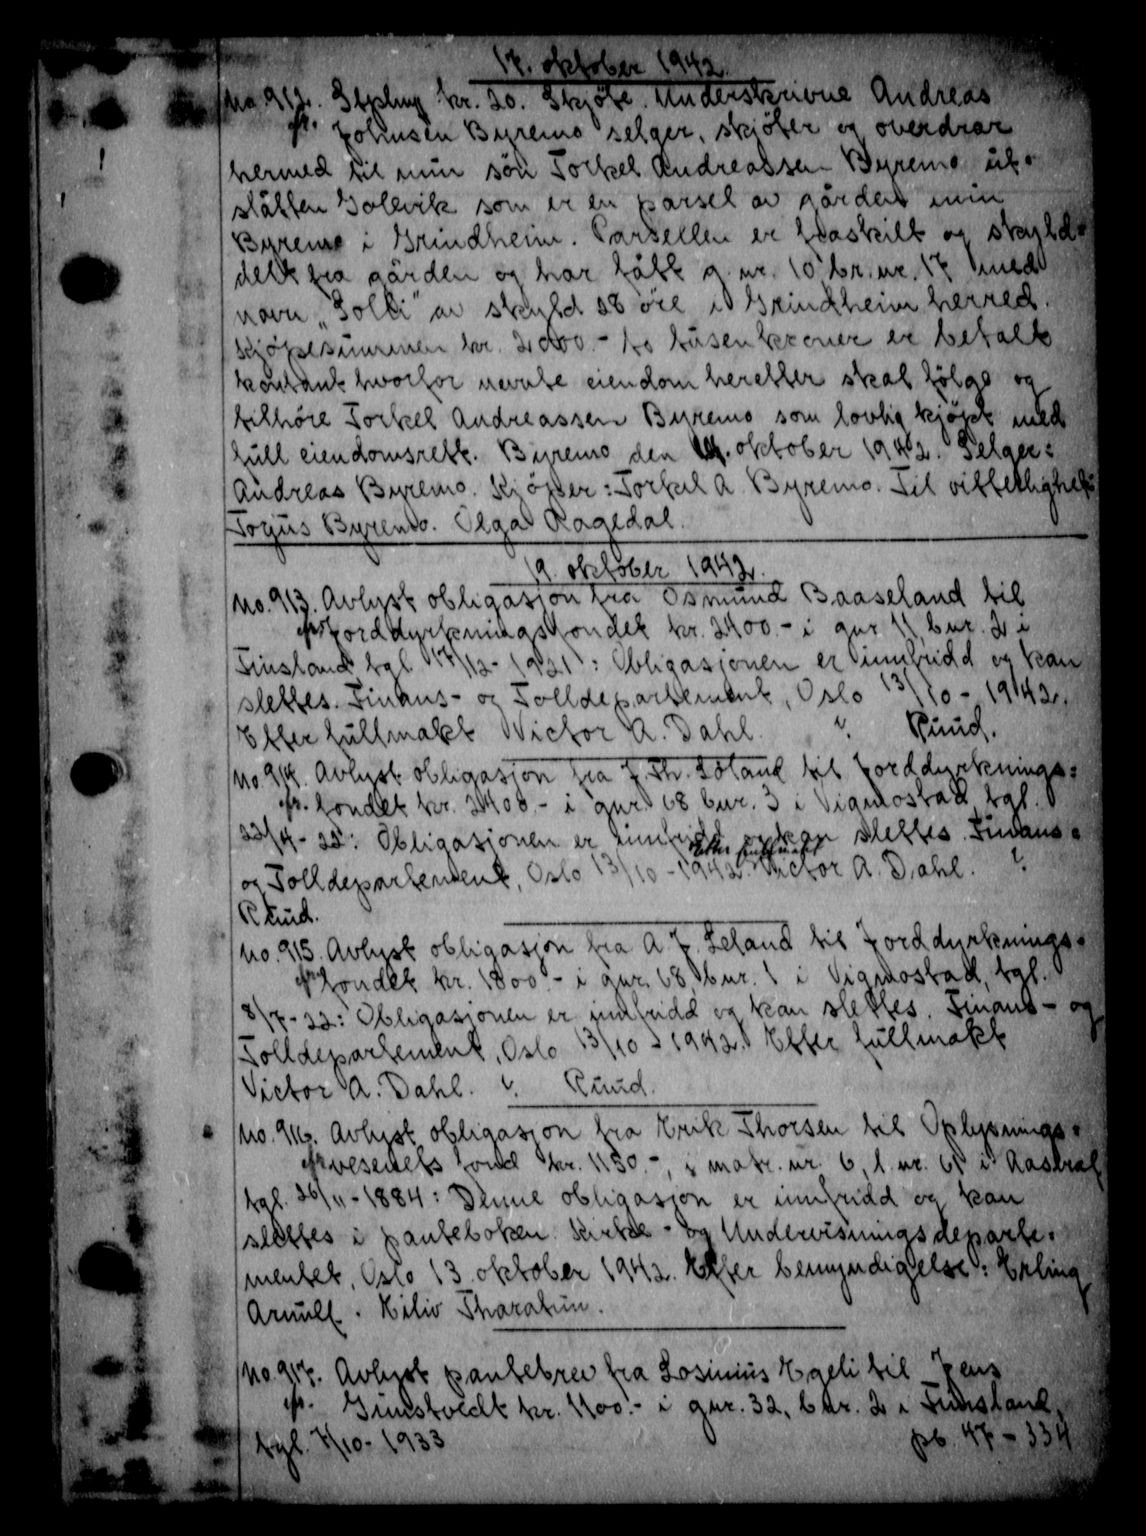 17. oktober 1942.
No. 912. Stplmp kr. 20. Skjöte. Underskrivne Andreas
Johnsen Byremo selger, skjöter og overdrar
hermed til min sön Torkel Andreassen Byremo ut-
slåtten Solevik som er en parsel av gården min
Byremo i Grindheim. Parsellen er fraskilt og skyld=
delt fra gården og har fått g.nr. 10 br.nr. 17 med
navn „Solli" av skyld 28 öre i Grindheim herred.
Kjöpesummen kr. 2000.- to tusen kroner er betalt
kontant hvorfor nevnte eiendom heretter skal fölge og
tilhöre Torkel Andreassen Byremo som lovlig kjöpt med
full eiendomsrett. Byremo den 14. oktober 1942. Selger:
Andreas Byremo. Kjöper: Torkel A. Byremo. Til vitterlighet:
Torjus Byremo. Olga Ragedal.
19. oktober 1942.
No. 913. Avlyst obligasjon fra Osmund Baaseland til
Jorddyrkningsfondet kr. 2400.- i gnr. 11, bnr. 2 i
Finsland, tgl. 17/12-1921: Obligasjonen er innfridd og kan
slettes. Finans- og Tolldepartement, Oslo 13/10-1942.
Etter fullmakt Victor A. Dahl. ? Ruud.
No. 914. Avlyst obligasjon fra J. Th. Löland til Jorddyrknings=
fondet kr. 2400.- i gnr. 68 bnr. 3 i Vigmostad, tgl.
22/4-22: Obligasjonen er innfridd og kan slettes. Finans=
og Tolldepartement, Oslo 13/10-1942. Etter fullmakt Victor A. Dahl. ?
Ruud.
No. 915. Avlyst obligasjon fra A. J. Leland til Jorddyrknings=
fondet kr. 1800.- i gnr. 68, bnr. 1 i Vigmostad, tgl.
8/7-22: Obligasjonen er innfridd og kan slettes. Finans- og
Tolldepartement, Oslo 13/10-1942. Etter fullmakt
Victor A. Dahl. ? Ruud.
No. 916. Avlyst obligasjon fra Erik Thorsen til Oplysnings=
vesenets fond kr. 1150.-, i matr. nr. 6, l.nr. 61 i Aaseral
tgl. 26/11-1884: Denne obligasjon er innfridd og kan
slettes i panteboken. Kirke- og Undervisningsdeparte=
mentet, Oslo 13. oktober 1942. Efter bemyndigelse: Erling
Eiliv
No. 917. Avlyst pantebrev fra Losinius Egeli til Jens
Gunstvedt kr. 1100.- i gnr. 32, bnr. 2 i Finsland,
tgl. 7/10-1933 pb. 47-334